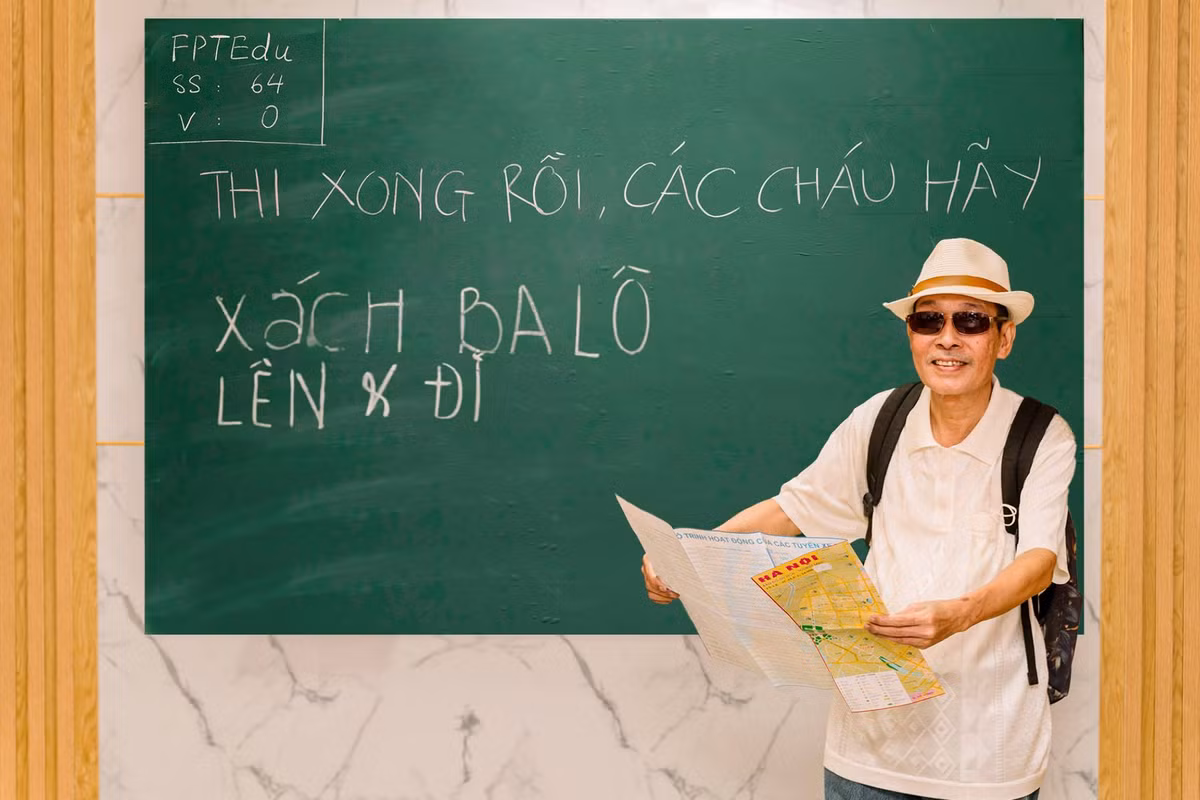 FPTEdu
SS : 64
V : 0
THI XONG RỒI, CÁC CHÁU HÃY
XáCH BA LÔ
LÊN & ĐI
TRÌNH HOẠT ĐỘNG CỦA CÁC TUYẾN XE
HÀ NỘI